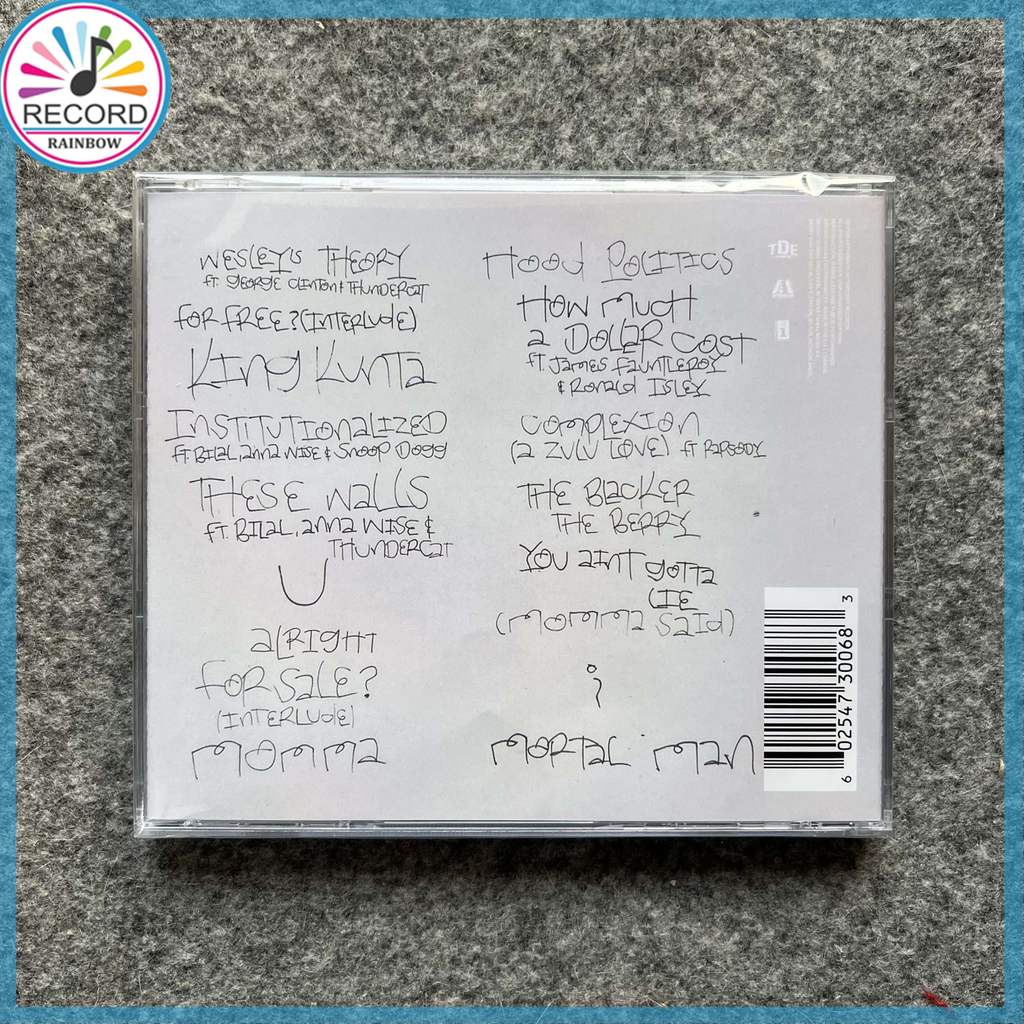 RECORD
RAINBOW
WESLEY'S THEORY
FT. GEORGE CLINTON & THUNDERCAT
FOR FREE? (INTERLUDE)
KING KUNTA
INSTITUTIONALIZED
FT BILAL, ANNA WISE & SNOOP DOGG
THESE WALLS
FT. BILAL, ANNA WISE &
THUNDERCAT
U
ALRIGHT
FOR SALE?
(INTERLUDE)
MOMMA
HOOD POLITICS
HOW MUCH
A DOLLAR COST
FT. JAMES FAUNTLEROY
& RONALD ISLEY
COMPLEXION
(A ZULU LOVE) FT RAPSODY
THE BLACKER
THE BERRY
YOU AINT GOTTA
LIE
(MOMMA SAID)
i
MORTAL MAN
TDE
6 02547 30068 3